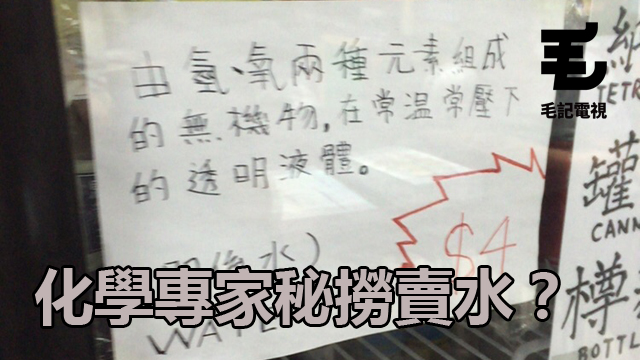 毛
毛記電視
由氫、氧兩種元素組成
的無機物,在常溫常壓下
的透明液體。
$4
係水)
WATE
TETR
罐
CANN
樽
BOTTL
化學專家秘撈賣水?